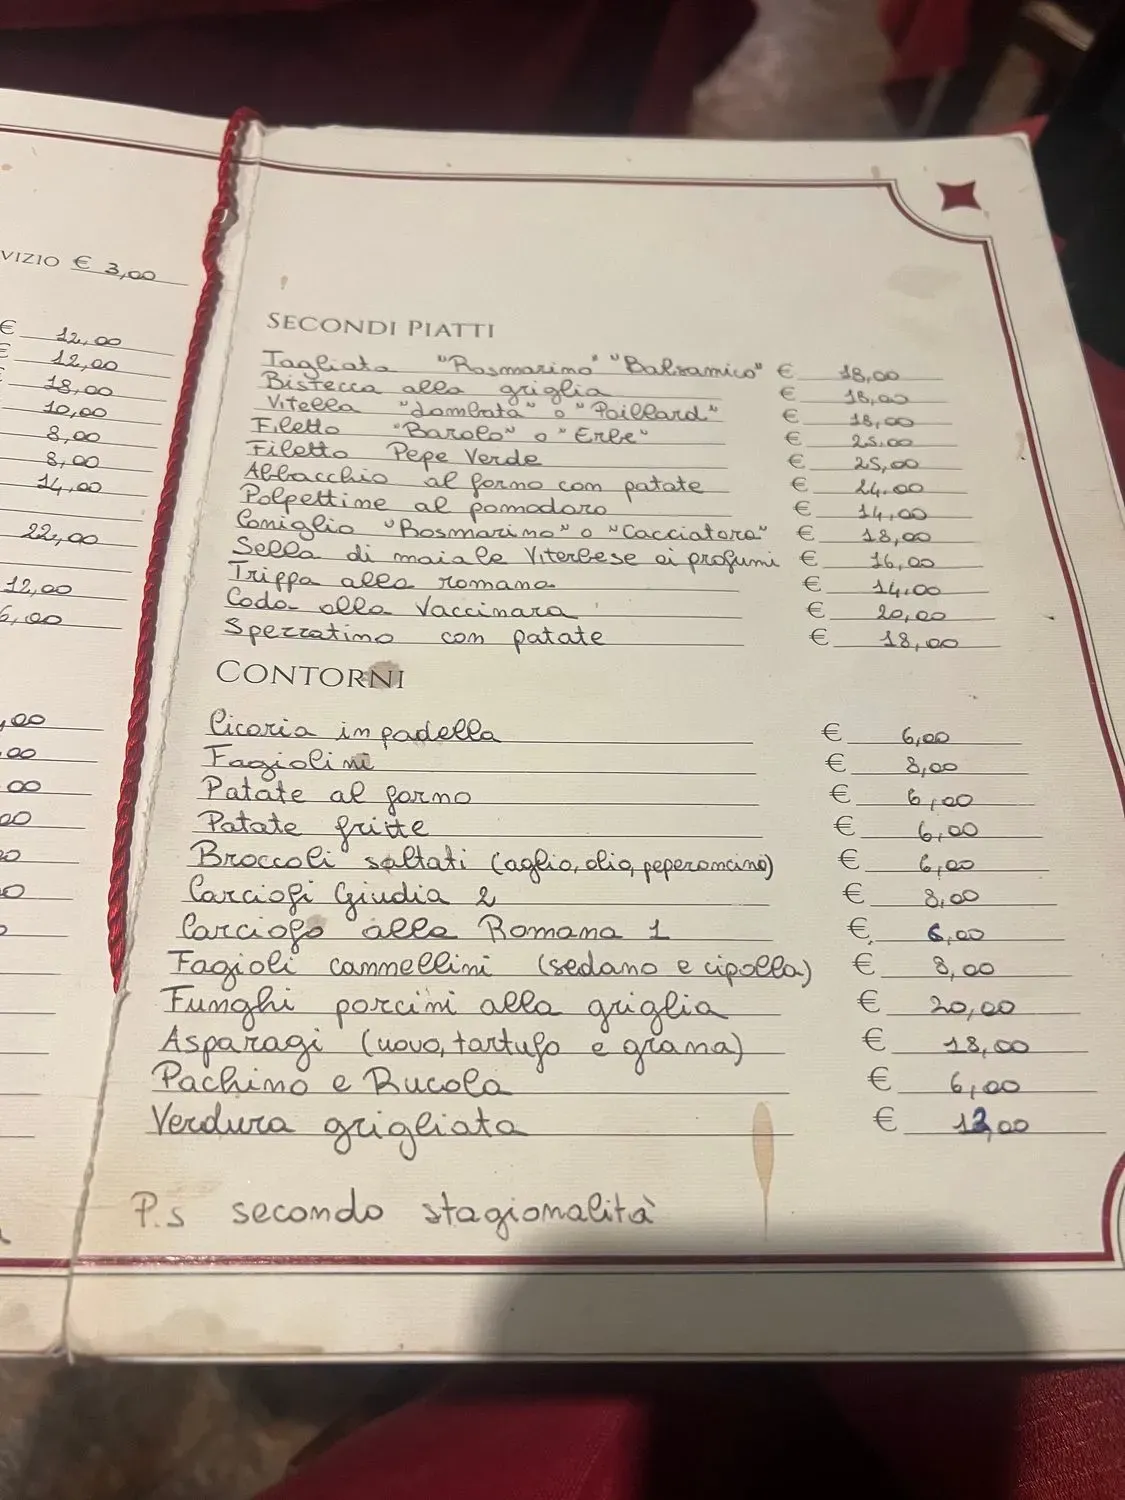 VIZIO € 3,00
€ 12,00
€ 12,00
€ 18,00
10,00
8,00
8,00
14,00
22,00
12,00
6,00
,00
,00
00
00
SECONDI PIATTI
Tagliata "Rosmarino" "Balsamico" € 18,00
Bistecca alla griglia € 18,00
Vitella "Lombata" o "Paillard" € 18,00
Filetto "Barolo" o "Erbe" € 25,00
Filetto Pepe Verde € 25,00
Abbacchio al forno con patate € 24,00
Polpettine al pomodoro € 14,00
Coniglio "Rosmarino" o "Cacciatora" € 18,00
Sella di maiale Viterbese ai profumi € 16,00
Trippa alla romana € 14,00
Coda alla Vaccinara € 20,00
Spezzatino con patate € 18,00
CONTORNI
Cicoria in padella € 6,00
Fagiolini € 8,00
Patate al forno € 6,00
Patate fritte € 6,00
Broccoli saltati (aglio, olio, peperoncino) € 6,00
Carciofi Giudia 2 € 8,00
Carciofo alla Romana 1 € 6,00
Fagioli cannellini (sedano e cipolla) € 8,00
Funghi porcini alla griglia € 20,00
Asparagi (uovo, tartufo e grana) € 18,00
Pachino e Rucola € 6,00
Verdura grigliata € 12,00
P.s secondo stagionalità